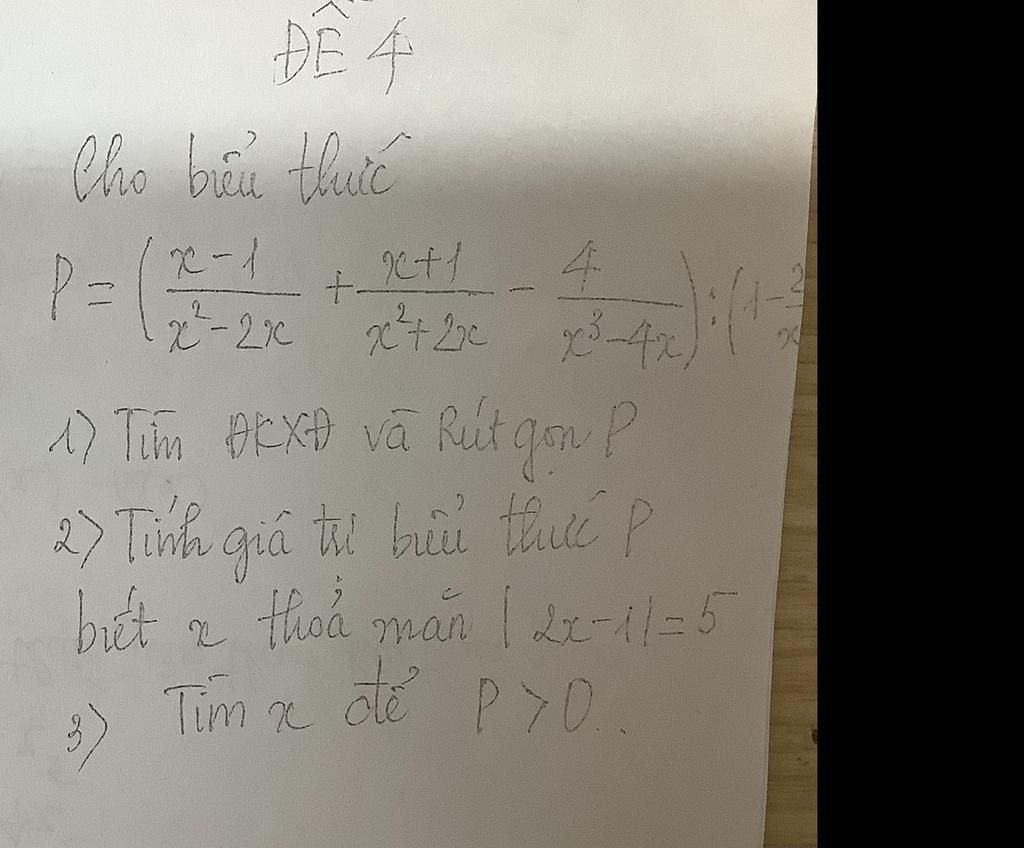 ĐỀ 4
Cho biểu thức
P = ( \frac{x-1}{x^2-2x} + \frac{x+1}{x^2+2x} - \frac{4}{x^3-4x} ) : ( 1 - \frac{2}{x}
1) Tìm ĐKXĐ và Rút gọn P
2) Tính giá trị biểu thức P
biết x thoả mãn |2x-1|=5
3) Tìm x để P > 0..